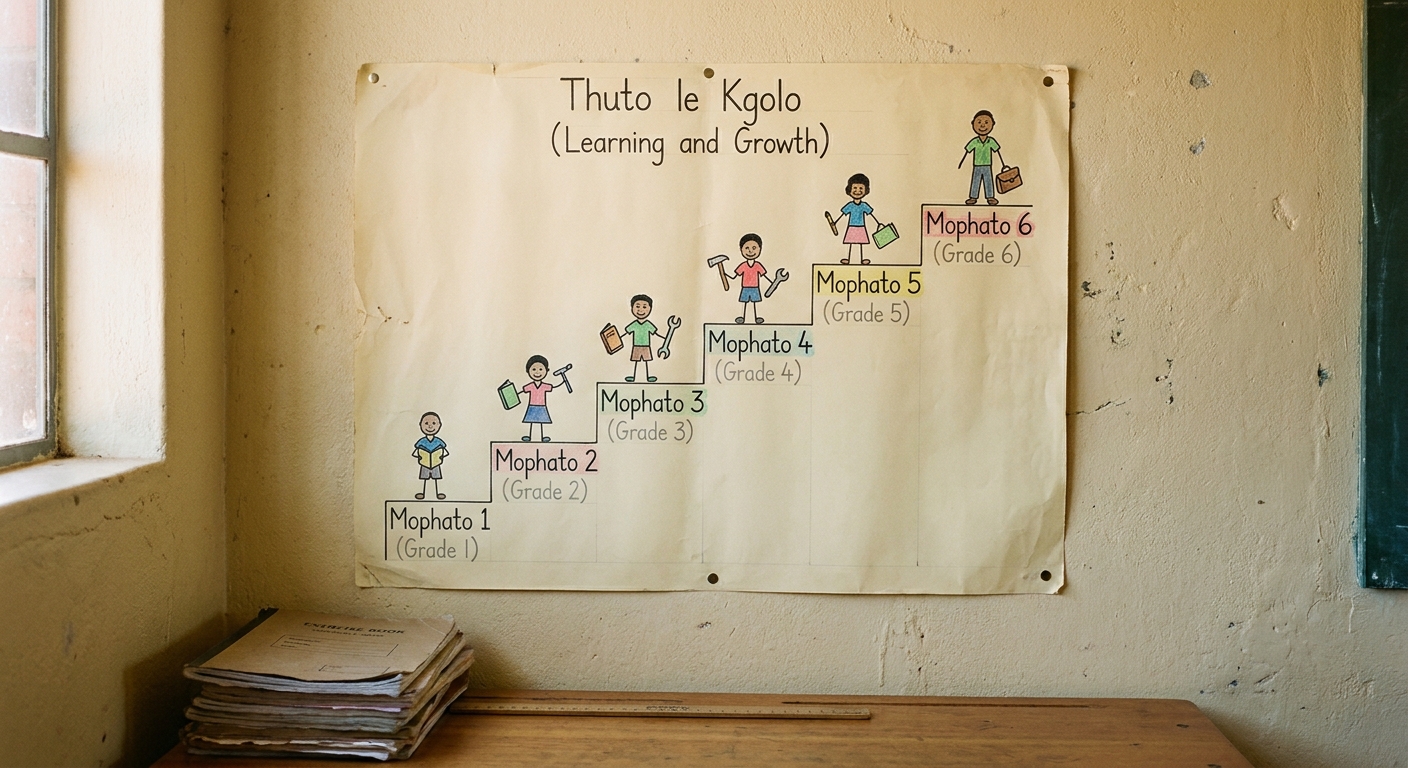 Thuto le Kgolo
(Learning and Growth)
Mophato 1
(Grade 1)
Mophato 2
(Grade 2)
Mophato 3
(Grade 3)
Mophato 4
(Grade 4)
Mophato 5
(Grade 5)
Mophato 6
(Grade 6)
EXERCISE BOOK